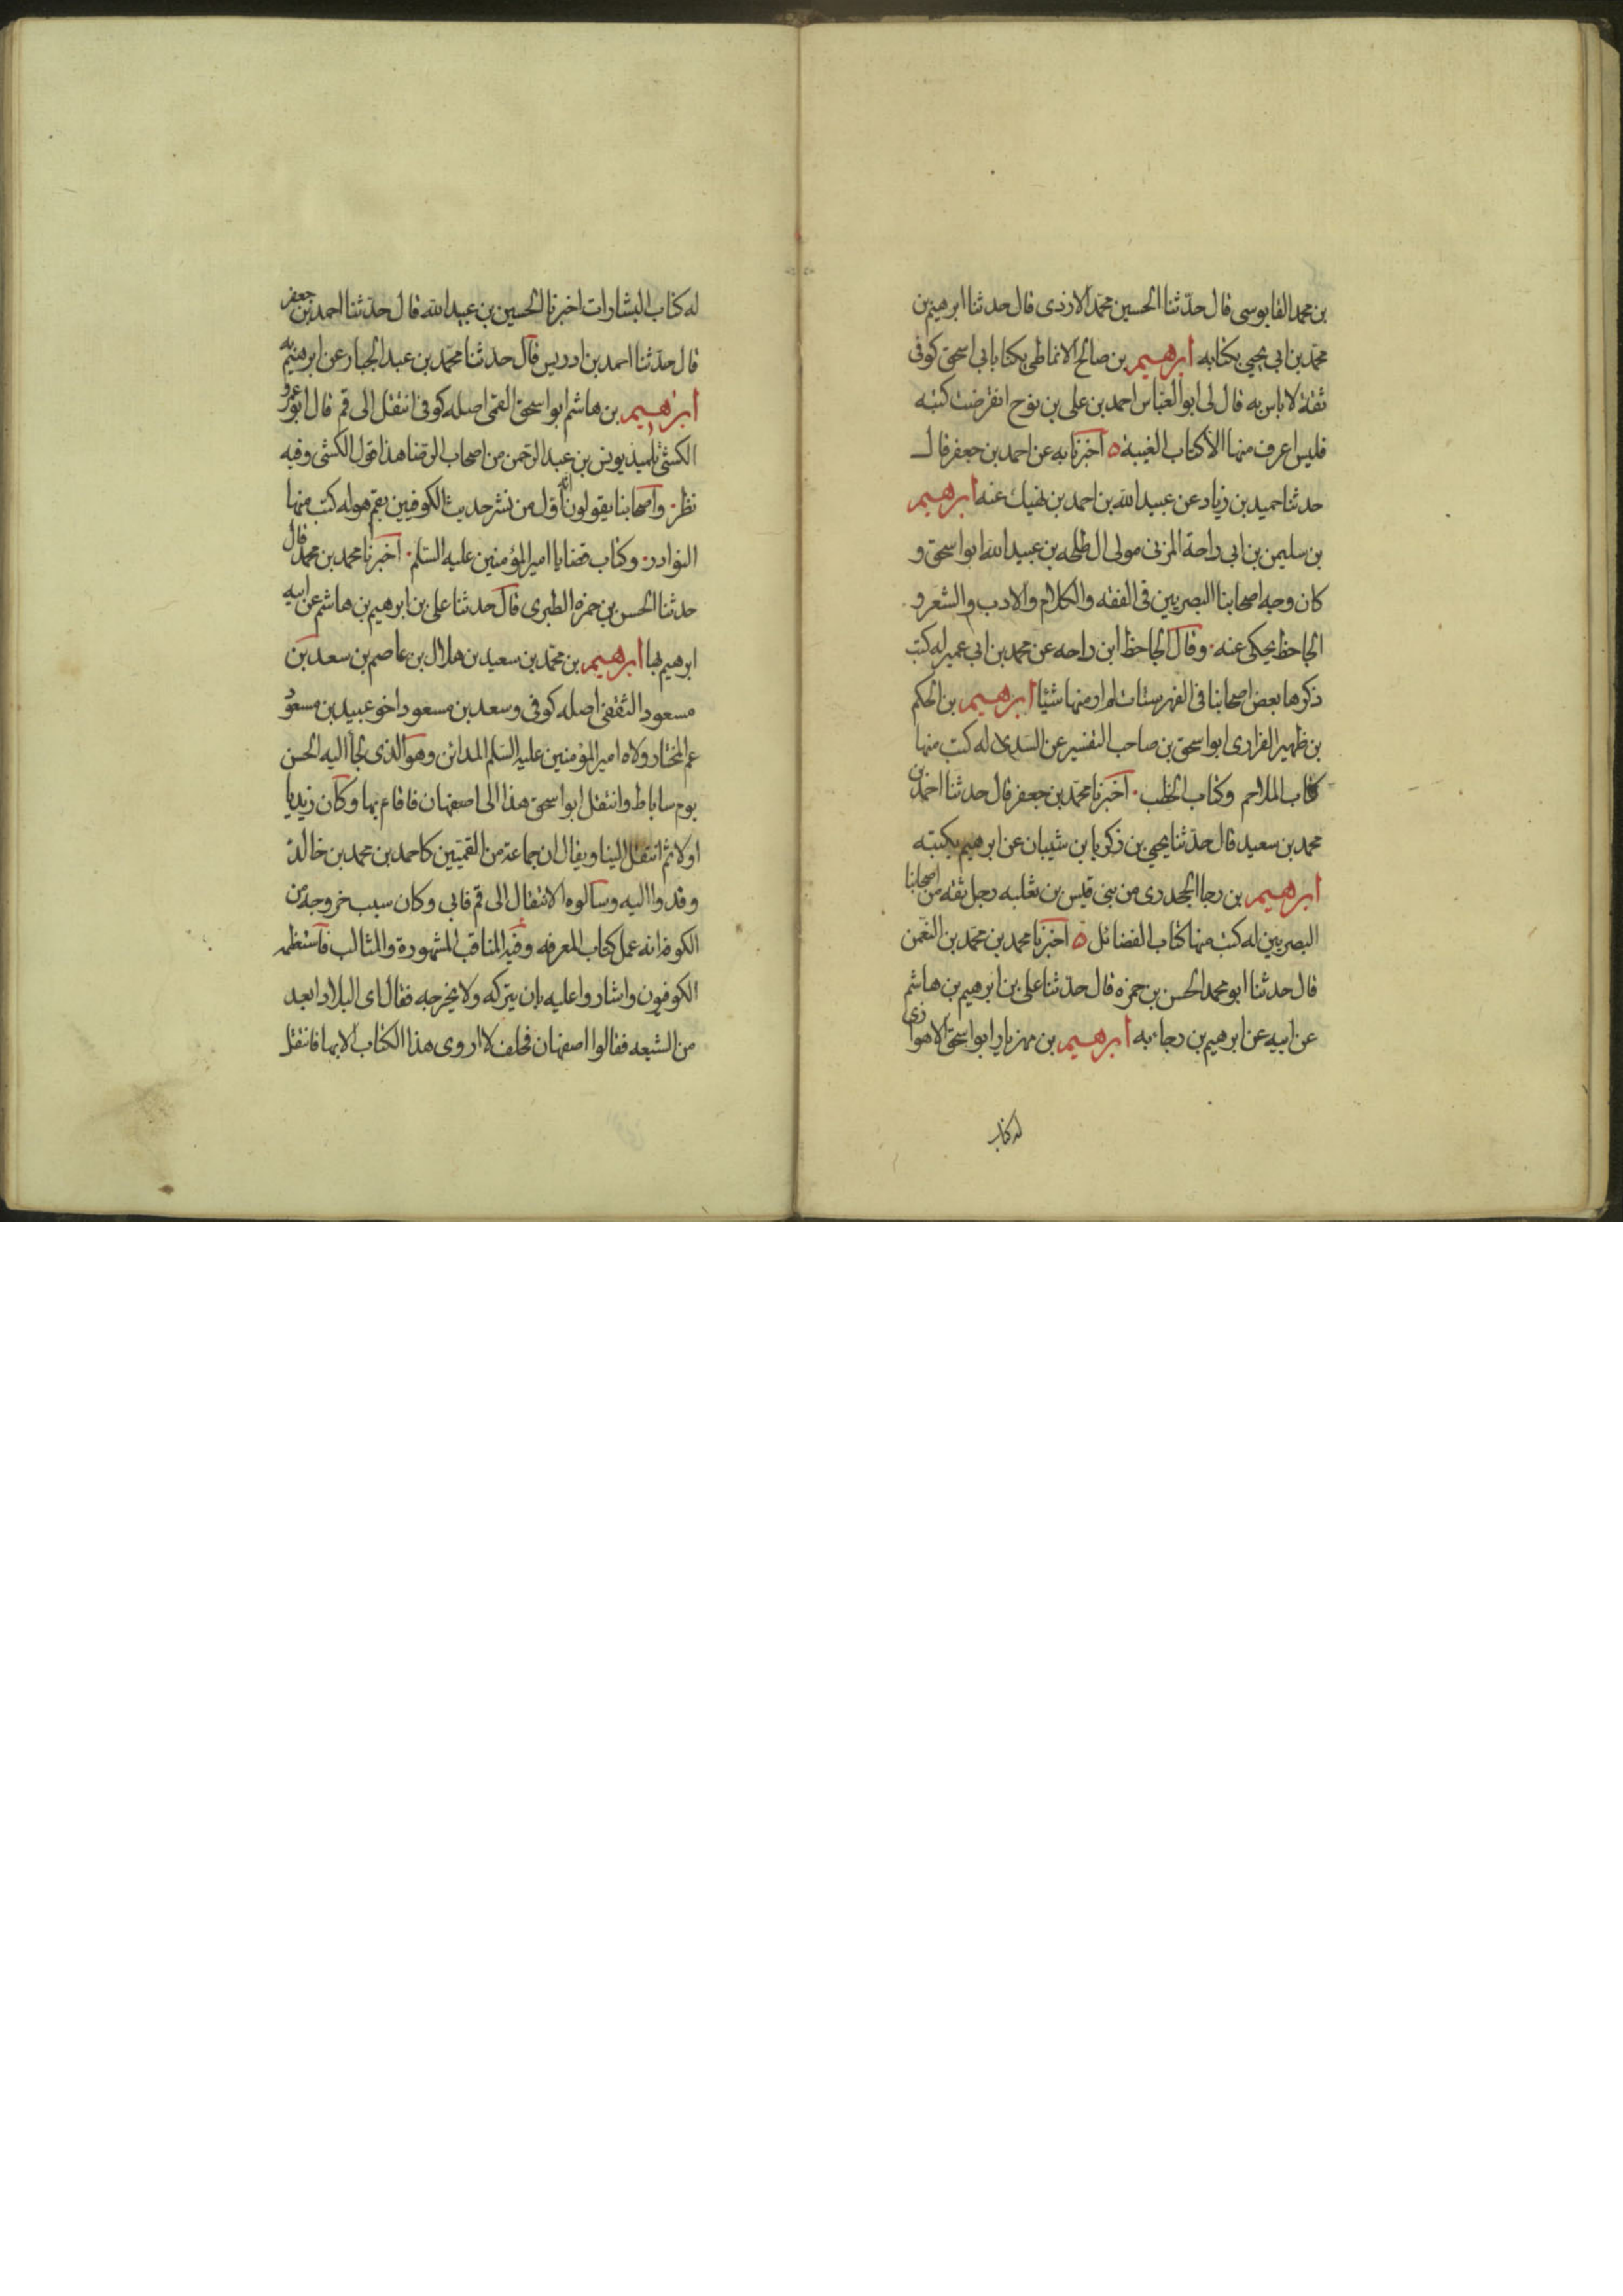 بن محمد القابوسى قال حدّثنا الحسين محمّد الازدى قال حدثنا ابرهيم بن
محمّد بن ابى يحيى بكتابه ابرهيم بن صالح الانماطى يكنا بابى اسحق كوفى
ثقة لا باس به قال لى ابو العبّاس احمد بن على بن نوح انقرضت كتبه
فليس اعرف منها الّا كتاب الغيبة ٥ اخبرنا به عن احمد بن جعفر قال
حدثنا حميد بن زياد عن عبيد الله بن احمد بن نهيك عنه ابرهيم
بن سليمن بن ابى داحة المزنى مولى ال طلحه بن عبيد الله ابو اسحق و
كان وجه اصحابنا البصريين فى الفقه والكلام والادب والشعر و
الجاحظ يحكى عنه وقال الجاحظ ابن داحه عن محمد بن ابى عمير له كتب
ذكرها بعض اصحابنا فى الفهرستات لم ار منها شيئا ابرهيم بن الحكم
بن ظهير الفزارى ابو اسحق بن صاحب التفسير عن السّدى له كتب منها
كتاب الملاحم وكتاب الخطب اخبرنا محمّد بن جعفر قال حدثنا احمد بن
محمد بن سعيد قال حدّثنا يحيى بن زكريا بن شيبان عن ابرهيم بكتبه
ابرهيم بن رجا الجحدرى من بنى قيس بن ثعلبه رجل ثقه من اصحابنا
البصريين له كتب منها كتاب الفضائل ٥ اخبرنا محمد بن محمّد بن النعمن
قال حدثنا ابو محمد الحسن بن حمزه قال حدّثنا على بن ابرهيم بن هاشم
عن ابيه عن ابرهيم بن رجاء به ابرهيم بن مهزيار ابو اسحق الاهوازى
له كتاب
له كتاب البشارات اخبرنا الحسين بن عبيد الله قال حدّثنا احمد بن جعفر
قال حدّثنا احمد بن ادريس قال حدثنا محمّد بن عبد الجبار عن ابرهيم به
ابرهيم بن هاشم ابو اسحق القمّى اصله كوفى انتقل الى قم قال ابو عمرو
الكشّى تلميذ يونس بن عبد الرّحمن من اصحاب الرّضا هذا قول الكشّى وفيه
نظر واصحابنا يقولون انّه اوّل من نشر حديث الكوفيين بقم هو له كتب منها
النوادر وكتاب قضايا امير المؤمنين عليه السّلم اخبرنا محمد بن محمد قال
حدثنا الحسن بن حمزه الطبرى قال حدثنا على بن ابرهيم بن هاشم عن ابيه
ابرهيم بها ابرهيم بن محمّد بن سعيد بن هلال بن عاصم بن سعد بن
مسعود الثقفى اصله كوفى وسعد بن مسعود اخو عبيد بن مسعود
عم المختار ولاه امير المؤمنين عليه السّلم المدائن وهو الذى لجأ اليه الحسن
يوم ساباط وانتقل ابو اسحق هذا الى اصفهان فاقام بها وكان زيديا
اولا ثم انتقل الينا ويقال ان جماعة من القمّيّين كاحمد بن محمد بن خالد
وفدوا اليه وسالوه الانتقال الى قم فابى وكان سبب خروجه من
الكوفة انه عمل كتاب المعرفه وفيه المناقب المشهورة والمثالب فاستعظمه
الكوفيون واشاروا عليه بان يتركه ولا يخرجه فقال اى البلاد ابعد
من الشيعه فقالوا اصفهان فحلف لا اروى هذا الكتاب الا بها فانتقل